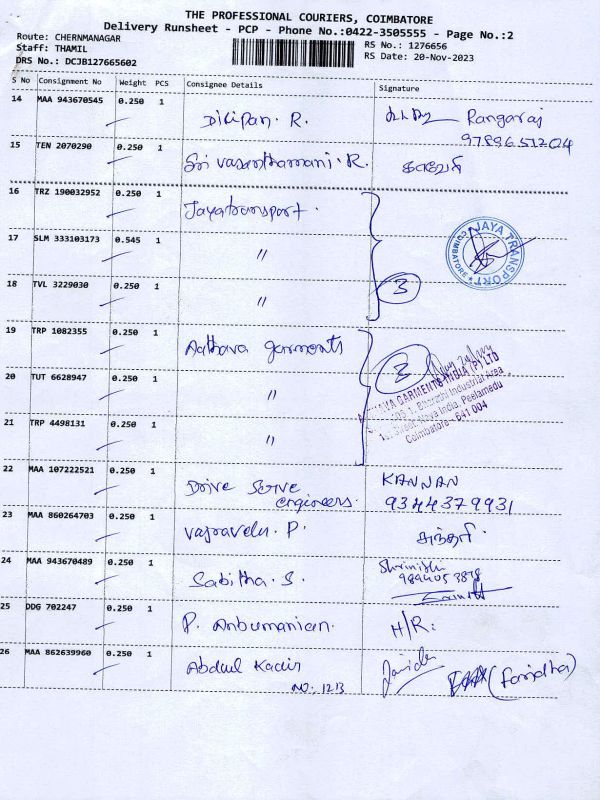 THE PROFESSIONAL COURIERS, COIMBATORE
Delivery Runsheet - PCP - Phone No.:0422-3505555 - Page No.:2
Route: CHERNMANAGAR
Staff: THAMIL
DRS No.: DCJB127665602
RS No.: 1276656
RS Date: 20-Nov-2023
S No Consignment No Weight PCS Consignee Details Signature
14 MAA 943670545 0.250 1 Dilipan. R. Rangaraj
9789651204
15 TEN 2070290 0.250 1 Sri Vasanthamani. R.
16 TRZ 190032952 0.250 1 Jayatransport.
JAYA TRANSPORT
COIMBATORE
17 SLM 333103173 0.545 1 "
18 TVL 3229030 0.250 1 " 3
19 TRP 1082355 0.250 1 Aathava garments 3
GARMENTS INDIA (P) LTD
Bharathi Industrial Area
Peelamedu
Coimbatore - 641 004
20 TUT 6628947 0.250 1 "
21 TRP 4498131 0.250 1 "
22 MAA 107222521 0.250 1 Drive Serve KANNAN
engineers. 9344379931
23 MAA 860264703 0.250 1 Vajravelu. P. சுந்தரி.
24 MAA 943670489 0.250 1 Sabitha. S.
25 DDG 702247 0.250 1 P. Anbumanian. H/R:
26 MAA 862639960 0.250 1 Abdul Kadir (faridha)
NO: 1213